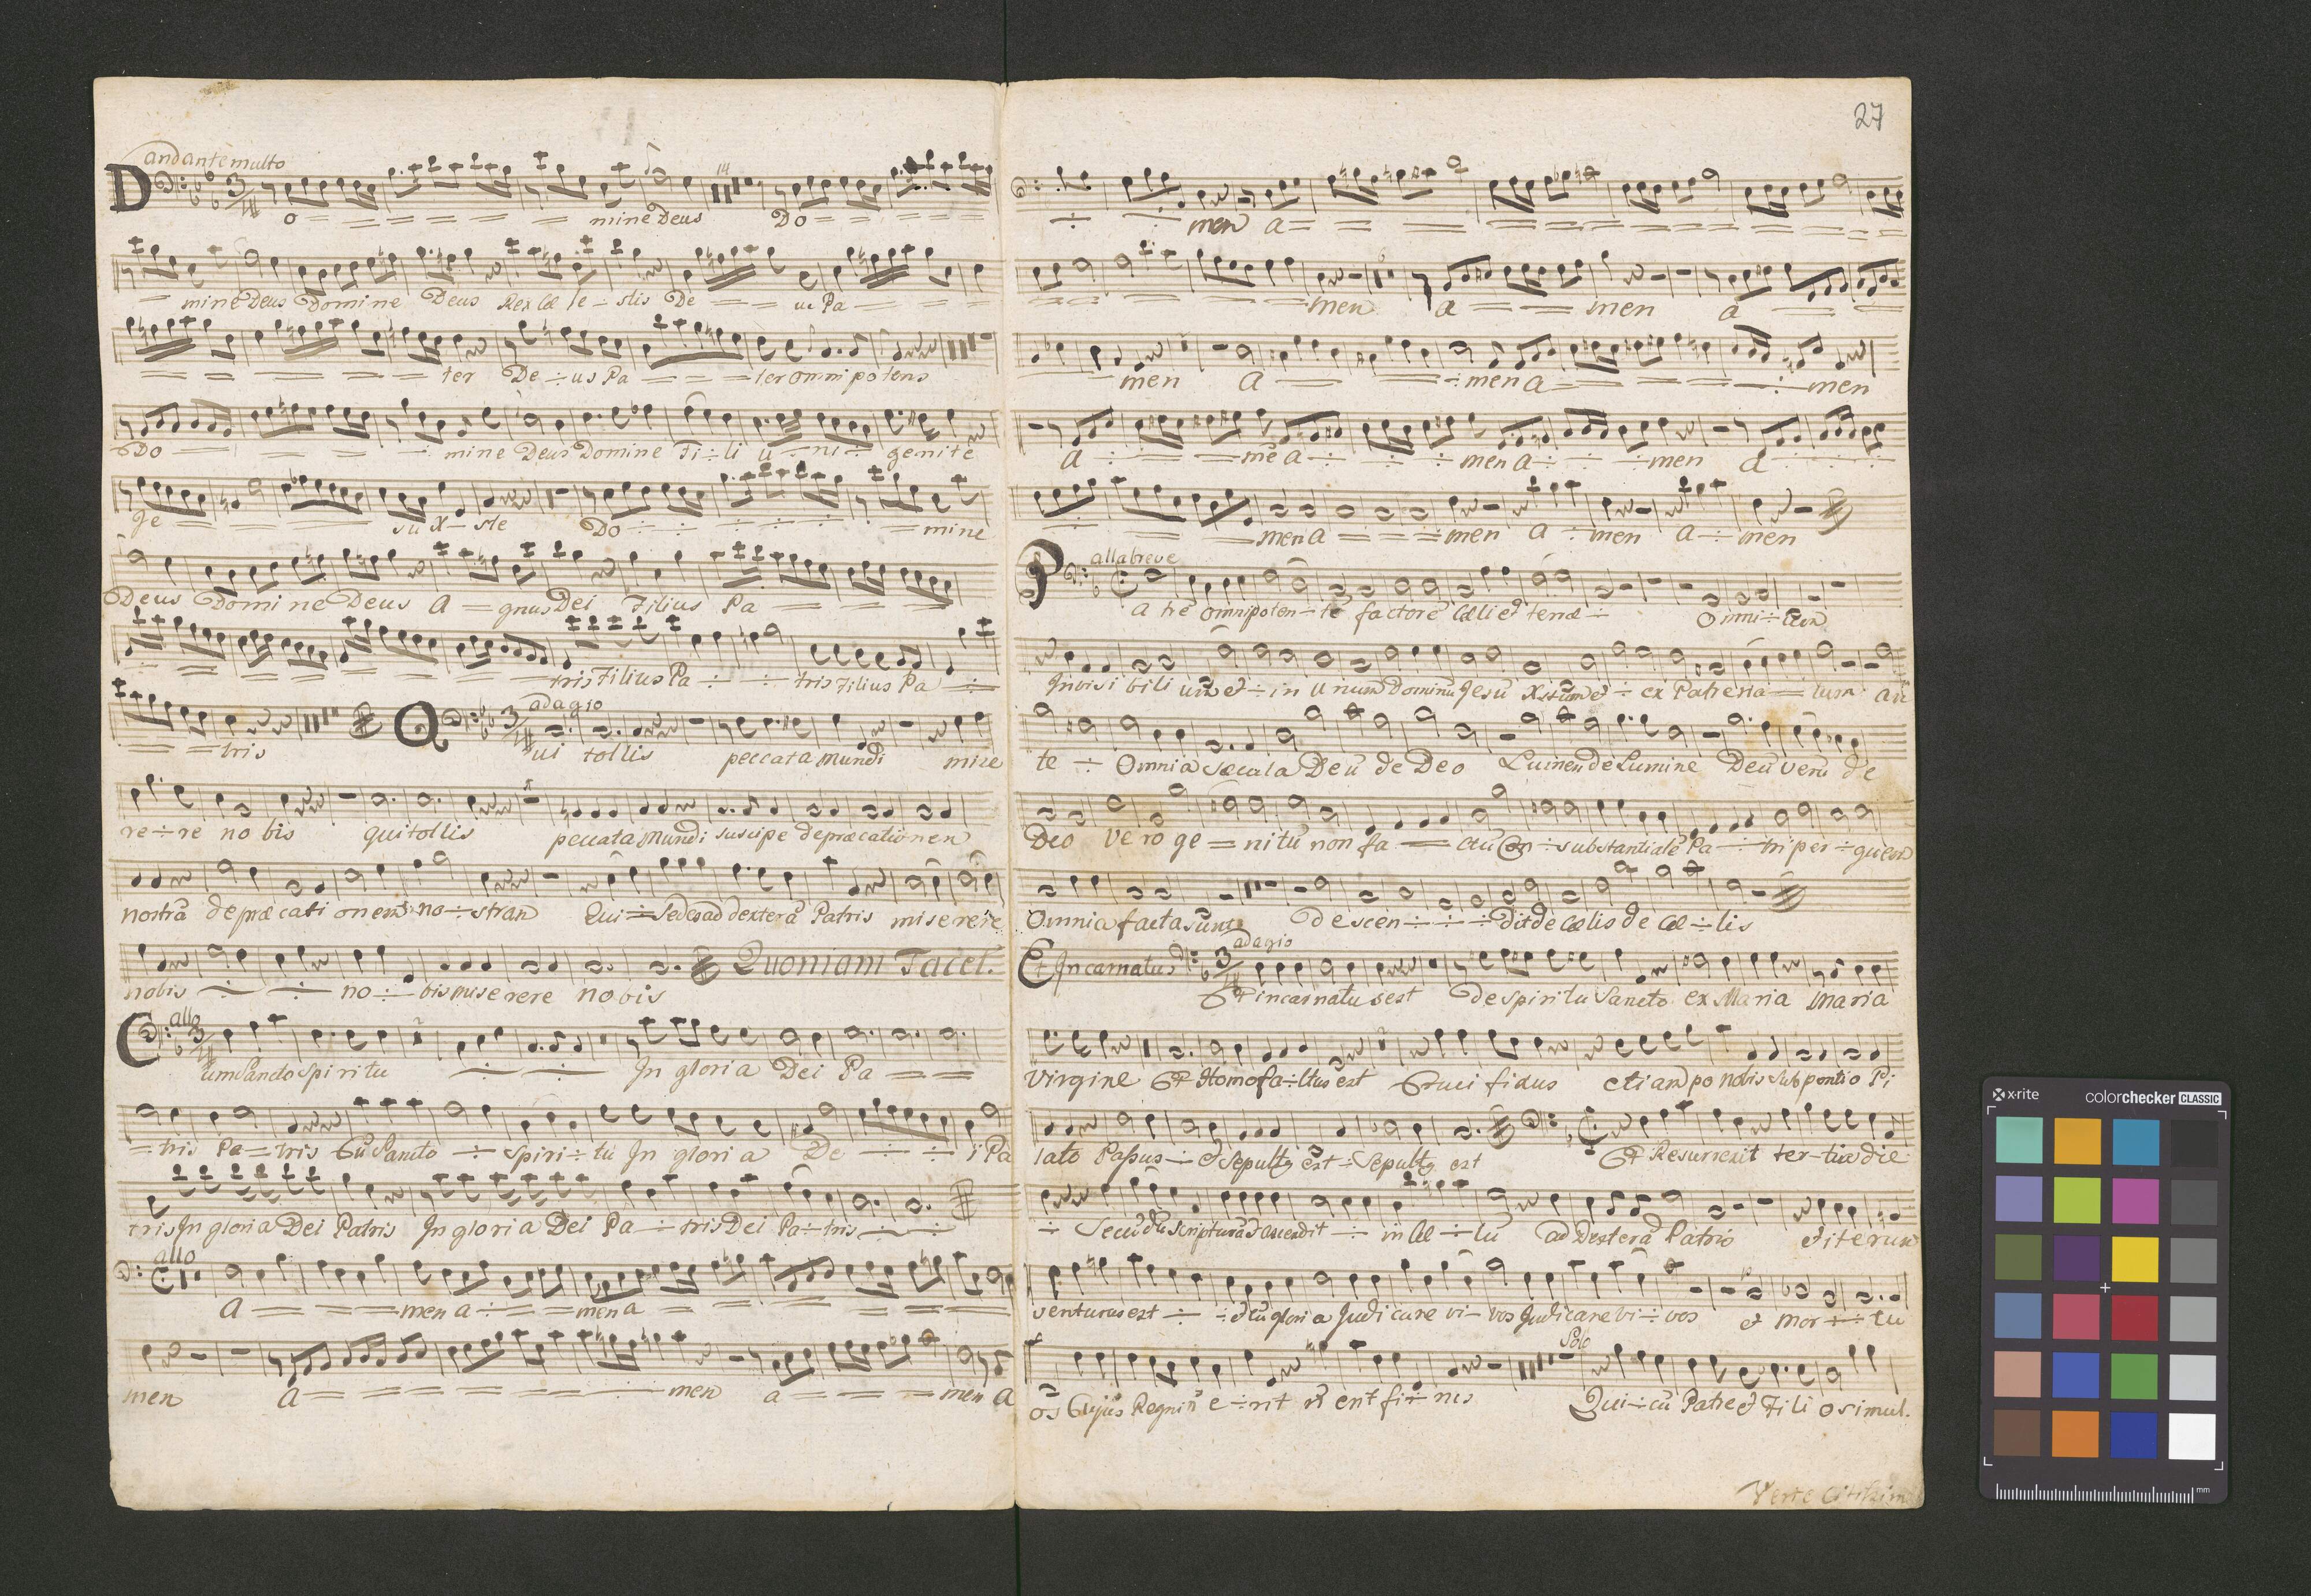 andante multo
Do = = = = = = mine Deus Do = = = = =
= mine Deus Domine Deus Rex Cœ le - stis De = = us Pa =
= = = = = = ter De ÷ us Pa = = = ter omnipotens
Do = = = = ÷ mine Deus Domine Fi ÷ li u ÷ ni ÷ genite
Je = = = su X - ste Do ÷ ÷ ÷ ÷ ÷ = mine
Deus Domine Deus A = gnus Dei Filius Pa = = =
÷ = = = = = = = tris Filius Pa ÷ ÷ tris Filius Pa ÷
= = tris
adagio
Qui tollis peccata mundi mise
re ÷ re no bis qui tollis peccata Mundi suscipe depræcationem
nostrā depræcati onem no ÷ stran Qui ÷ Sedes ad dexterā Patris miserere
nobis ÷ ÷ no ÷ bis miserere nobis Quoniam Tacet.
allo
Cum Sancto Spiritu ÷ ÷ In gloria Dei Pa = =
= tris Pa = tris Cū Sancto ÷ Spiri ÷ tu In gloria De ÷ ÷ i Pa
tris In gloria Dei Patris In gloria Dei Pa ÷ tris Dei Pa ÷ tris ÷ ÷
allo
A = = = men a ÷ = = men a = = = = = =
men A = = = = = ÷ men a = = = men A
27
÷ ÷ men a = = = = = = a = = =
= = = = = = men a = = = men a = =
men A = = ÷ men a = = = = = ÷ men
A ÷ = = mē a ÷ ÷ ÷ men a ÷ ÷ ÷ men a ÷ ÷ ÷
÷ = = men a = = = = men A ÷ men a ÷ men
allabreve
Patrē omnipoten ÷ tē factorē Cœli et terræ ÷ Omni ÷ um
Invisi bili um et ÷ in unum Dominū Jesū Xstum et ÷ ex Patre na = tum an
te ÷ Omnia Sæcula Deū de Deo Lumen de Lumine Deū verū de
Deo vero ge = nitū non fa = ctū Con ÷ substantialē Pa ÷ tri per ÷ quem
Omnia facta sunt descen ÷ ÷ ÷ dit de Cœlis de Cœ ÷ lis
adagio
Et Incarnatus
Et incarnatus est de Spiritu Sancto ex Maria Maria
Virgine Et Homo fa ÷ ctus est Cruci fixus etiam pro nobis sub pontio Pi
lato Passus ÷ et Sepultq est ÷ Sepultq est Et Resurrexit ter-tia die
÷ Secūdū Scripturas ascendit ÷ in Cœ ÷ lū ad Dexterā Patris et iterum
venturus est ÷ ÷ et cū gloria Judicare vi - vos Judicare vi ÷ vos et mor ÷ ÷ tu
Solo
os Cujus Regni ñ e ÷ rit ñ erit fi ÷ nis Qui ÷ cū Patre et Fili o simul.
Verte Citissim
x·rite
colorchecker CLASSIC
mm